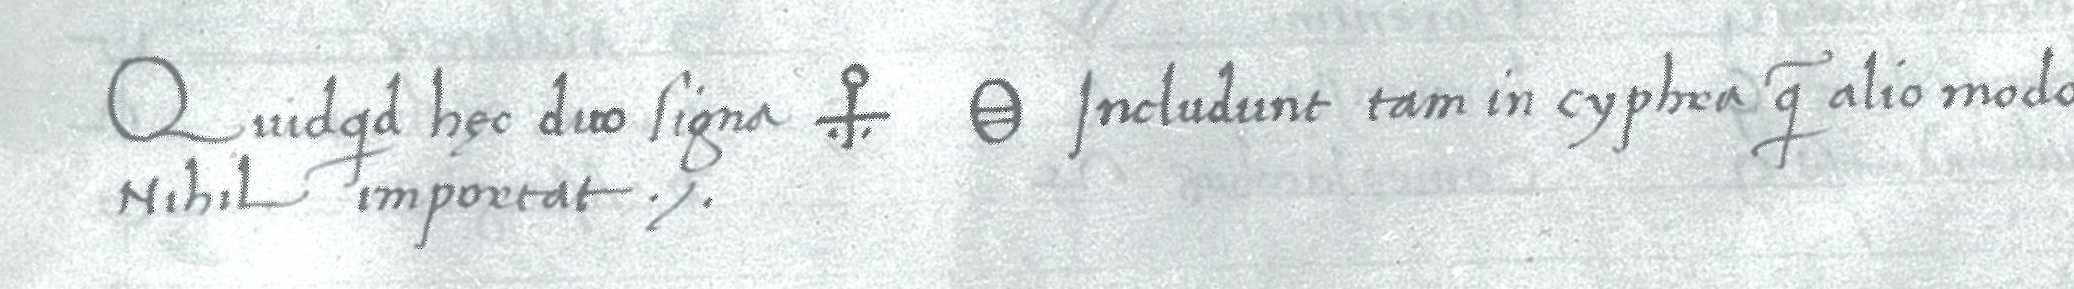 Quidqd hęc duo signa ⚨ ⊖ Includunt tam in cyphra q̃ alio modo
Nihil importat ./.